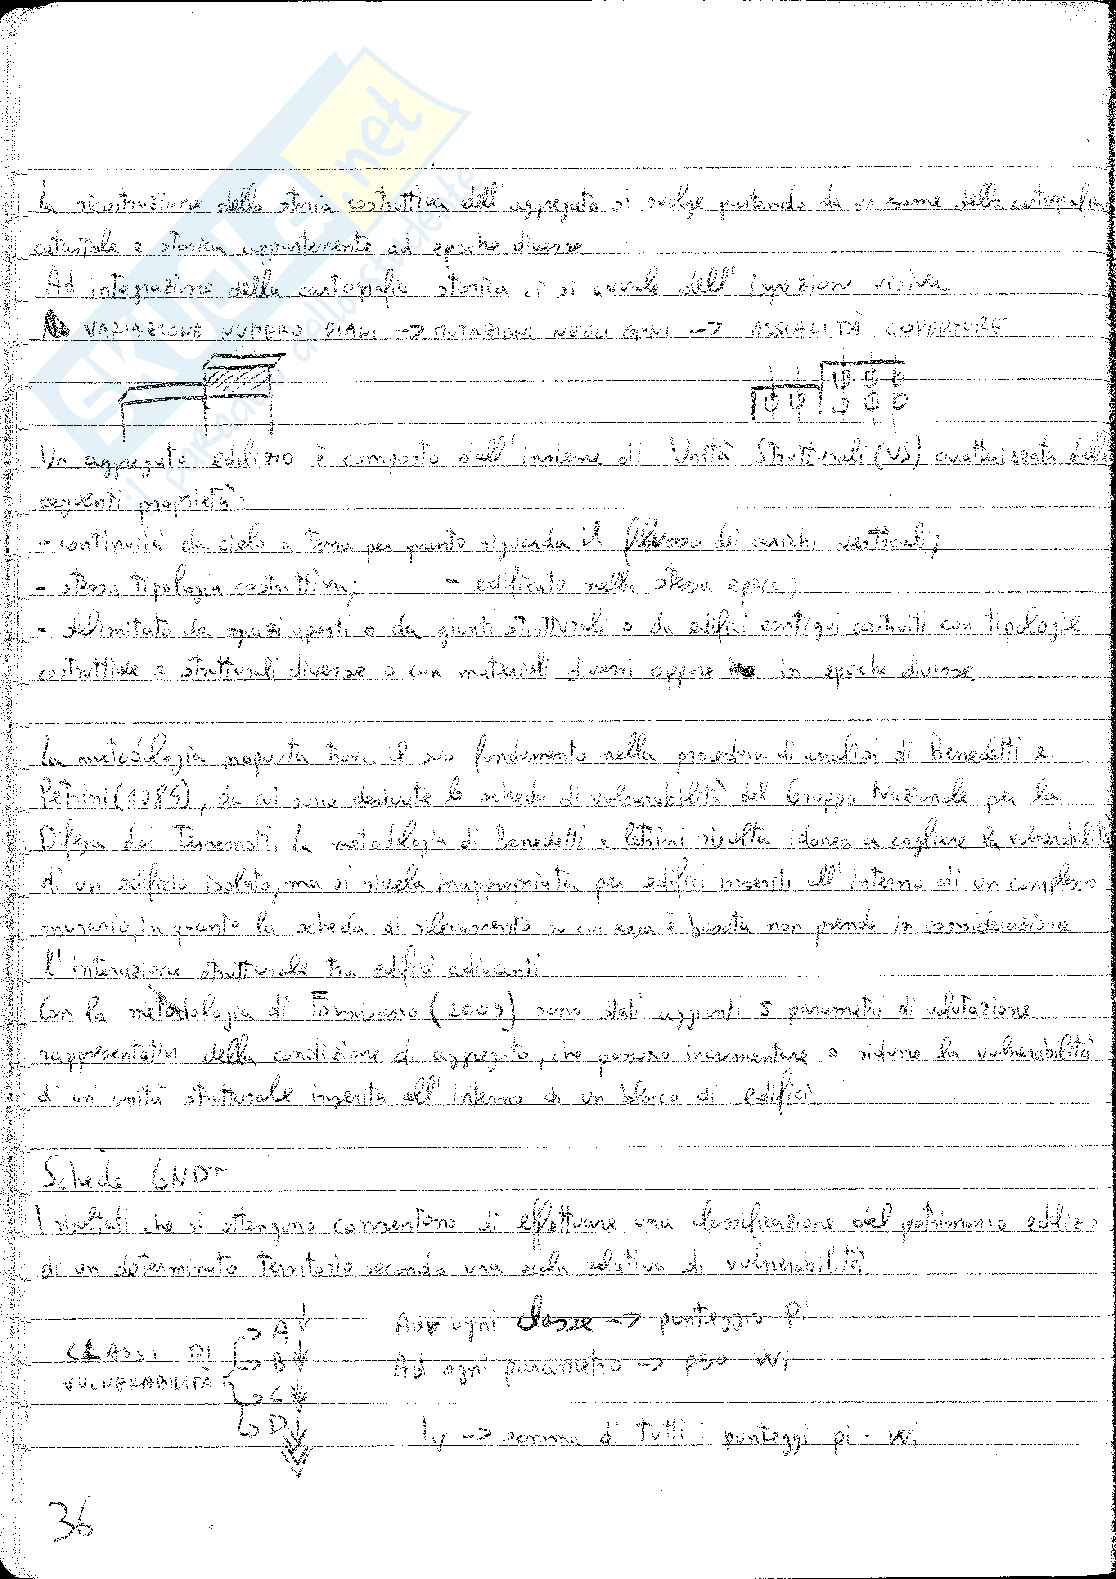 La ricostruzione della storia costruttiva dell'aggregato si svolge partendo da un esame della cartografia
catastale e storica appartenente ad epoche diverse
Ad integrazione della cartografia storica ci si avvale dell'ispezione visiva
VARIAZIONE NUMERO PIANI -> MUTAZIONI NEGLI -> ASSIALITÀ COPERTURE
Un aggregato edilizio è composto dall'insieme di Unità Strutturali (US) caratterizzate dalle
seguenti proprietà:
- continuità da cielo a terra per quanto riguarda il flusso dei carichi verticali;
- stessa tipologia costruttiva; - edificato nella stessa epoca;
- delimitato da spazi aperti o da giunti strutturali o da edifici contigui costruiti con tipologie
costruttive e strutturali diverse o con materiali diversi oppure in epoche diverse
La metodologia proposta trova il suo fondamento nella procedura di analisi di Benedetti e
Petrini (1984), da cui sono derivate le schede di vulnerabilità del Gruppo Nazionale per la
Difesa dai Terremoti. La metodologia di Benedetti e Petrini risulta idonea a cogliere la vulnerabilità
di un edificio isolato, ma si rivela inappropriata per edifici inseriti all'interno di un complesso
murario, in quanto la scheda di rilevamento su cui essa è basata non prende in considerazione
l'interazione strutturale tra edifici adiacenti
Con la metodologia di Formisano (2009) sono stati aggiunti 5 parametri di valutazione
rappresentativi della condizione di aggregato, che possono incrementare o ridurre la vulnerabilità
di un'unità strutturale inserita all'interno di un blocco di edifici.
Scheda GNDT
I risultati che si ottengono consentono di effettuare una classificazione del patrimonio edilizio
di un determinato territorio secondo una scala relativa di vulnerabilità
CLASSI DI VULNERABILITÀ -> A
-> B
-> C
-> D
Ad ogni classe -> punteggio Pi
Ad ogni parametro -> peso Wi
Iv -> somma di tutti i punteggi pi · Wi
36
SKUOLA.net